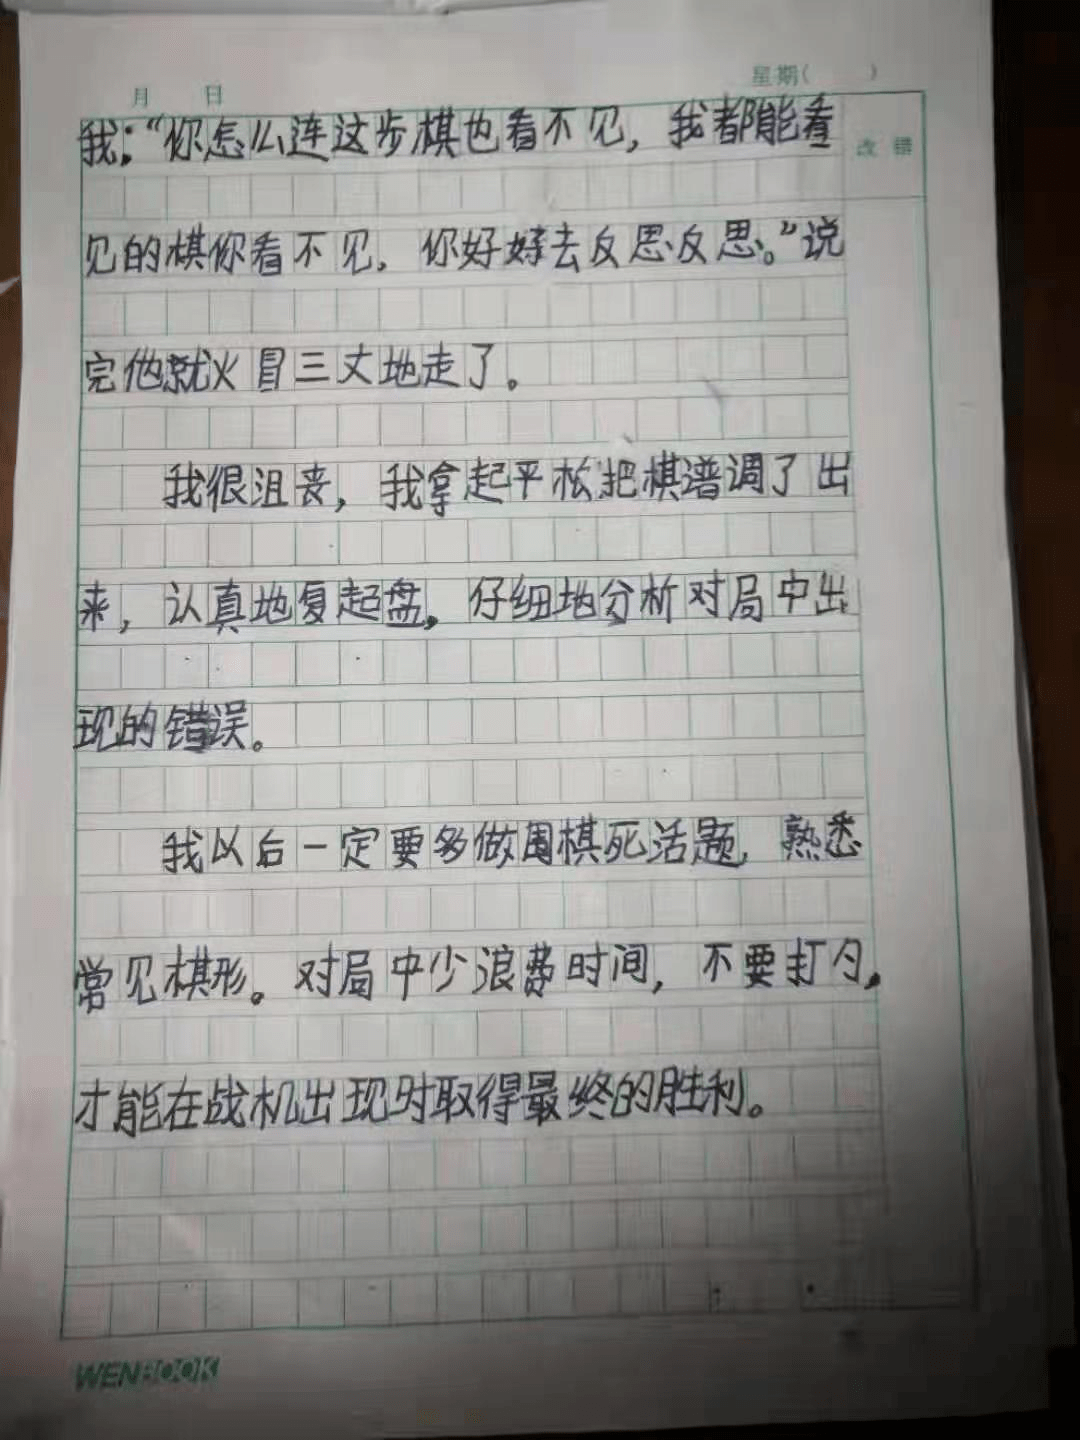 月 日 星期( )
改错
我:“你怎么连这步棋也看不见,我都能看
见的棋你看不见,你好好去反思反思。”说
完他就火冒三丈地走了。
我很沮丧,我拿起平板把棋谱调了出
来,认真地复起盘,仔细地分析对局中出
现的错误。
我以后一定要多做围棋死活题,熟悉
常见棋形。对局中少浪费时间,不要打勺,
才能在战机出现时取得最终的胜利。
WENBOOK